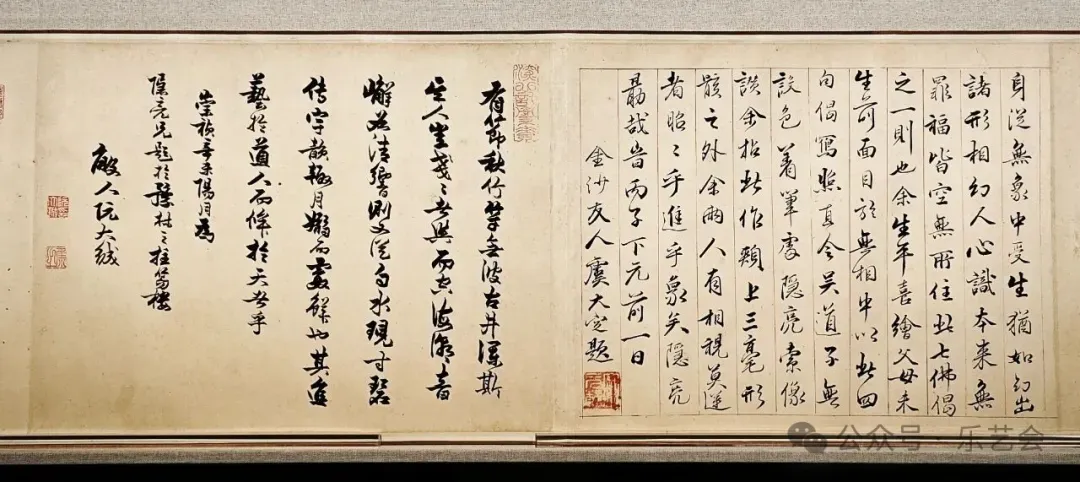 身從無象中受生猶如幻出
諸形相幻人心識本來無
罪福皆空無所住此七佛偈
之一則也余生年喜繪父母未
生前面目於無相中以此四
句偈寫照直令吳道子無
設色着筆處隱亮索像
談余拈此作頰上三毫形
骸之外余兩人有相視莫逆
者昭〻乎進乎象矣隱亮
勗哉旹丙子下元前一日
金沙友人虞大定題
有節秋竹竿無波古井斯
人坐〻與而海潮音
清響則又從白水現寸碧
傳字月而也其進
藝於道人而侔於天者乎
崇禎辛未陽月為
隱亮兄題於村之拄笏樓
人阮大鋮
公众号·乐艺会